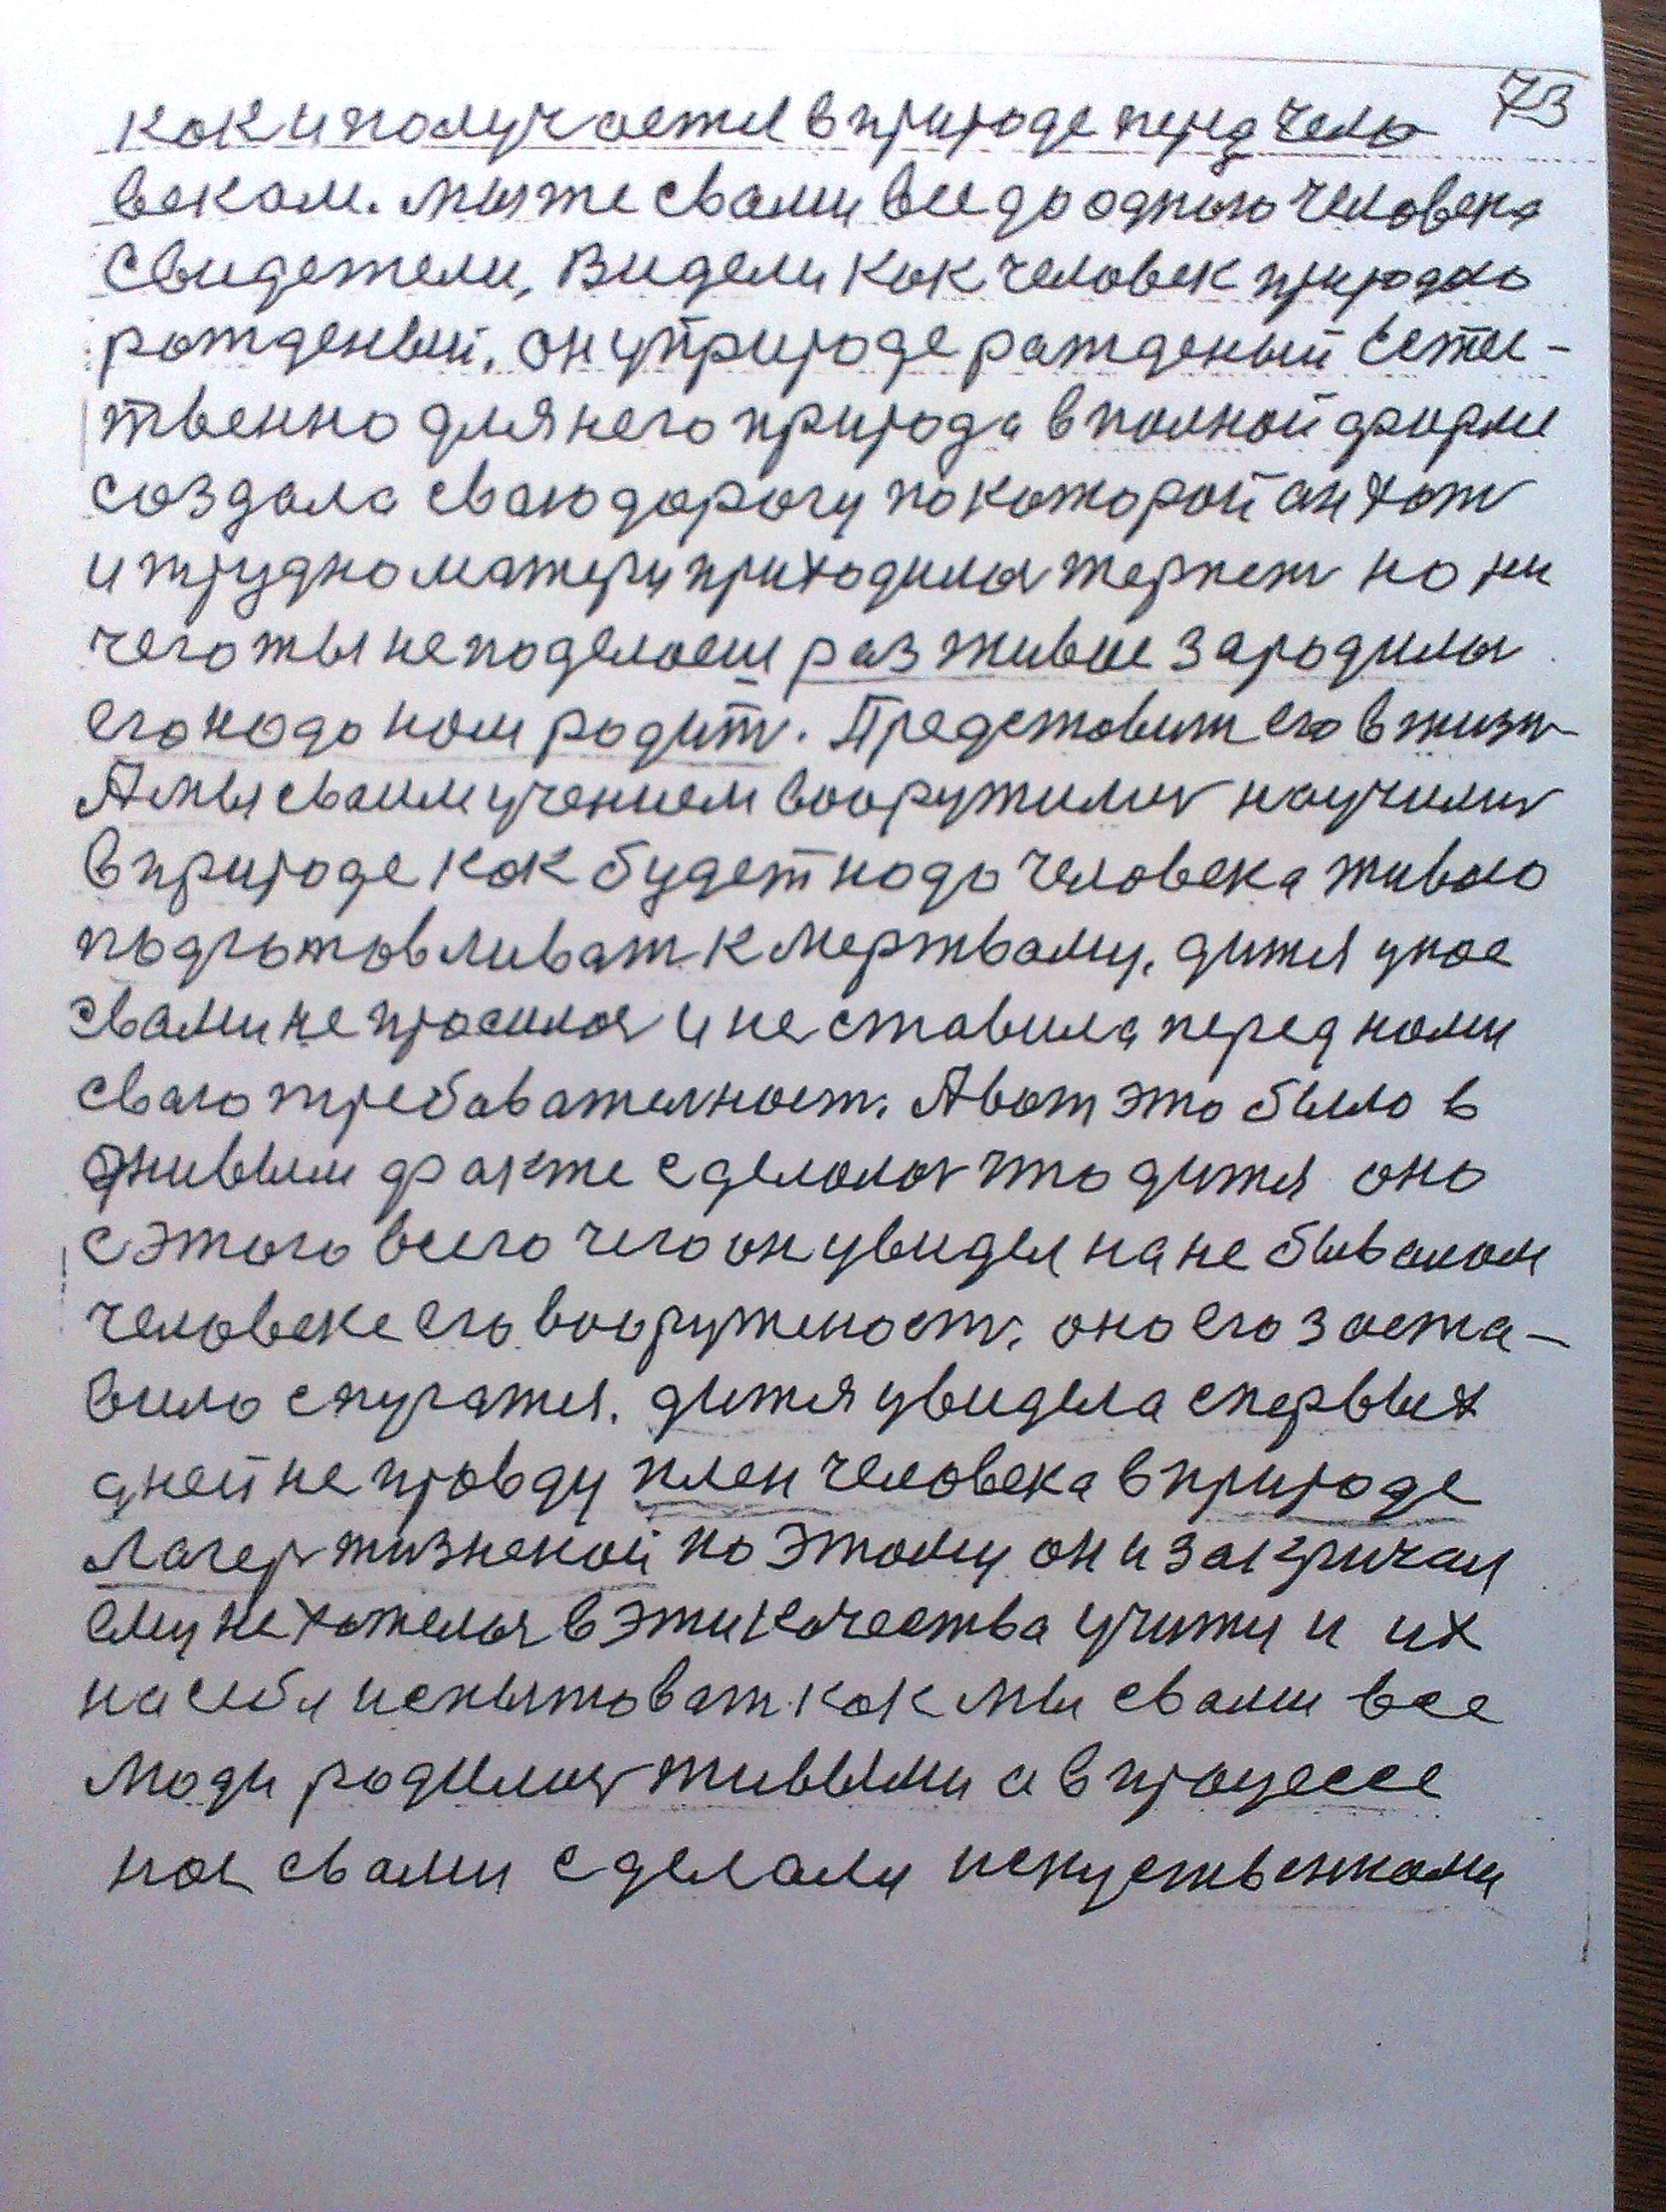 73
как и получается в природе перед чело
векам. Мы же свами все до одного человека
свидетели, Видели как человек природно
рожденый. он у природе ражденый Есте-
твенно для него природа в полной форме
создала сваю дорогу по каторой ан хот
и трудно матери приходилась терпеть но ни
чего ты не поделаеш раз живое зародилось
его надо нам родить. Представит его в жизнь
А мы сваим учением вооружились научились
в природе как будет надо человека живого
подготовливат к мертвому. дитя у нас
свами не просилось и не ставила перед нами
сваю требавателность. А вот это было в
живым факте сделалось что дитя оно
с этого всего чего он увидел на не бывалом
человеке его вооруженость. оно его заста-
вило спугатся. дитя увидела с первых
дней не правду плен человека в природе
Лагерь жизненой по этому он и закричал
ему не хотелось в эти качества уйти и их
на себя испытоват как мы свами все
люди родились живыми а в процессе
нас свами сделали искуственоми